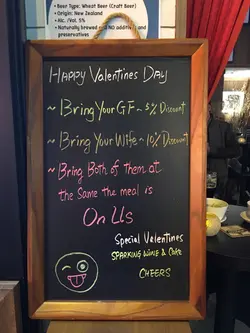 • Beer Type: Wheat Beer (Craft Beer)
• Origin: New Zealand
• Alc. /Vol. 5%
• Naturally brewed NO additives and
preservatives
Happy Valentines Day
~ Bring Your GF ~ 5% Discount
~ Bring Your Wife ~ 10% Discount
~ Bring Both of them at
the Same the meal is
On Us
Special Valentines
SPARKING WINE & Cake
CHEERS